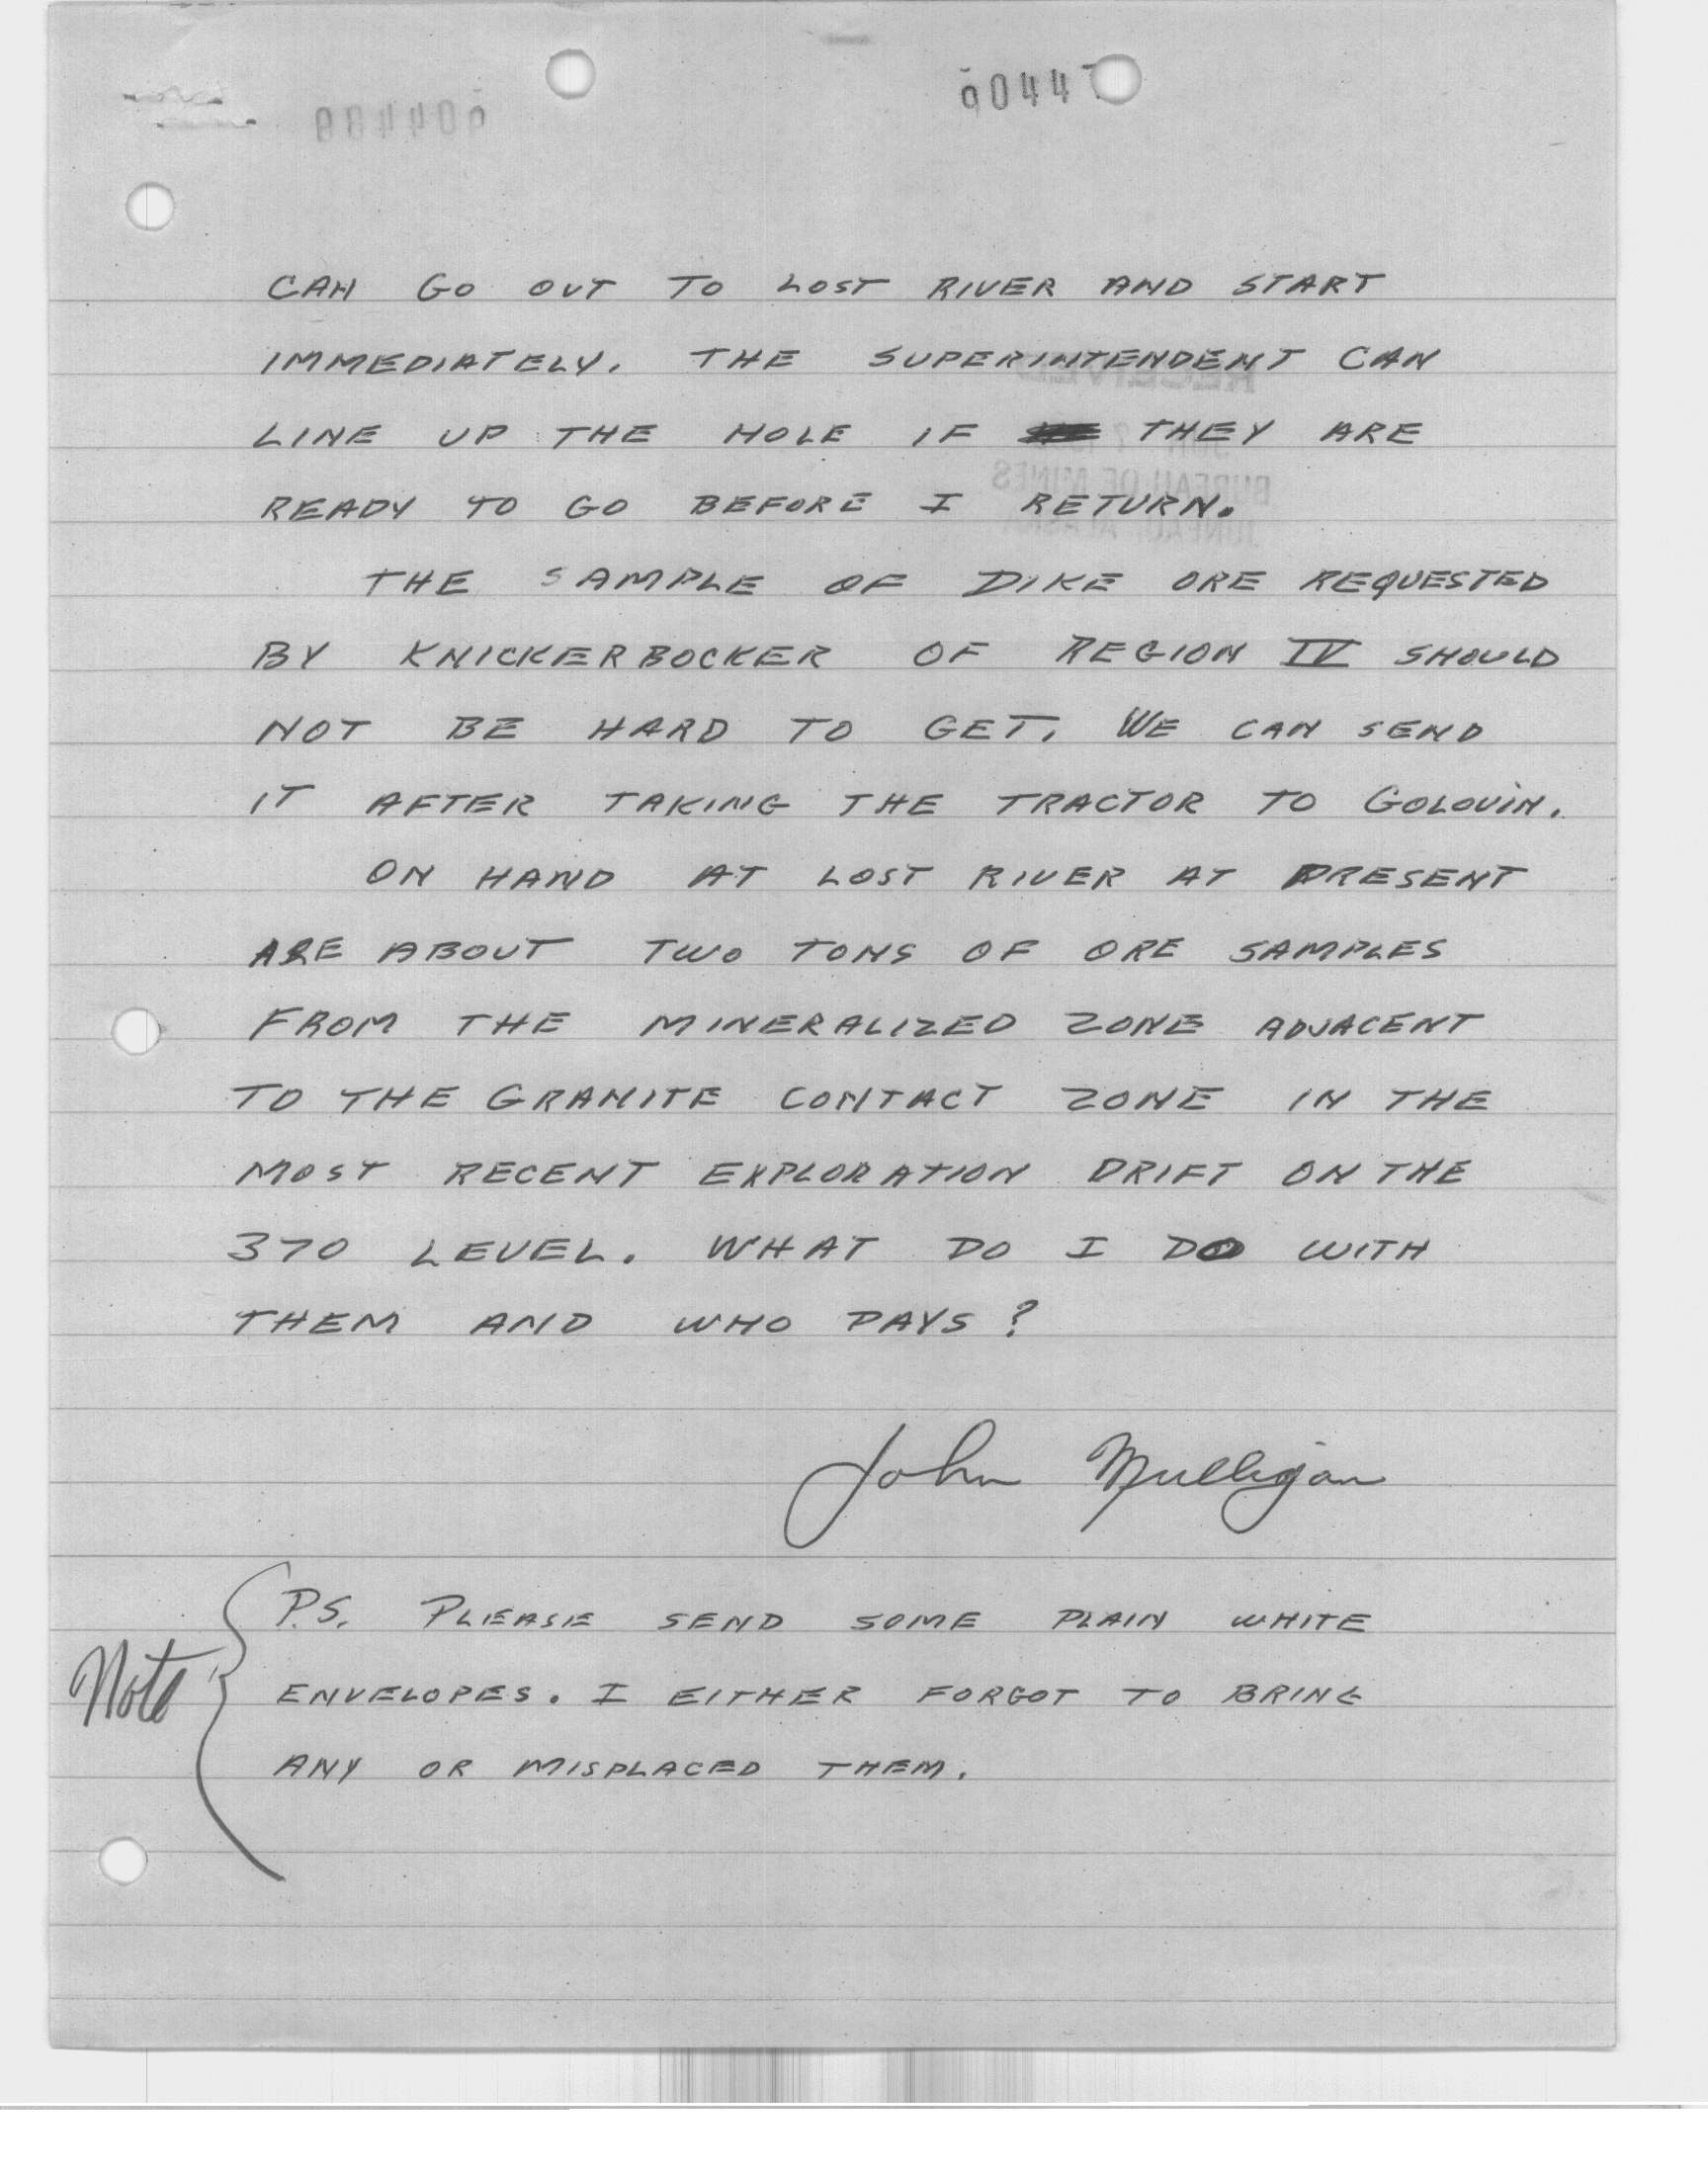 CAN GO OUT TO LOST RIVER AND START
IMMEDIATELY. THE SUPERINTENDENT CAN
LINE UP THE HOLE IF THEY ARE
READY TO GO BEFORE I RETURN.
THE SAMPLE OF DIKE ORE REQUESTED
BY KNICKERBOCKER OF REGION IV SHOULD
NOT BE HARD TO GET. WE CAN SEND
IT AFTER TAKING THE TRACTOR TO GOLOVIN.
ON HAND AT LOST RIVER AT PRESENT
ARE ABOUT TWO TONS OF ORE SAMPLES
FROM THE MINERALIZED ZONE ADJACENT
TO THE GRANITE CONTACT ZONE IN THE
MOST RECENT EXPLORATION DRIFT ON THE
370 LEVEL. WHAT DO I DO WITH
THEM AND WHO PAYS?
John Mulligan
P.S. PLEASE SEND SOME PLAIN WHITE
Note ENVELOPES. I EITHER FORGOT TO BRING
ANY OR MISPLACED THEM.